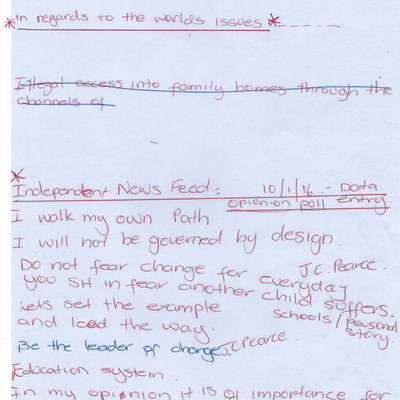 *in regards to the worlds issues *-----
Illegal access into family homes through the
channels of
*
Independent News Feed: 10/1/16 - Data
opionion poll entry.
I walk my own Path
I will not be governed by design.
Do not fear change for everyday J.C. Pearce.
you sit in fear another child suffers.
Lets set the example schools/personal
and lead the way. story.
Be the leader of change J.C Pearce.
Education system.
In my opionion it is of importance for